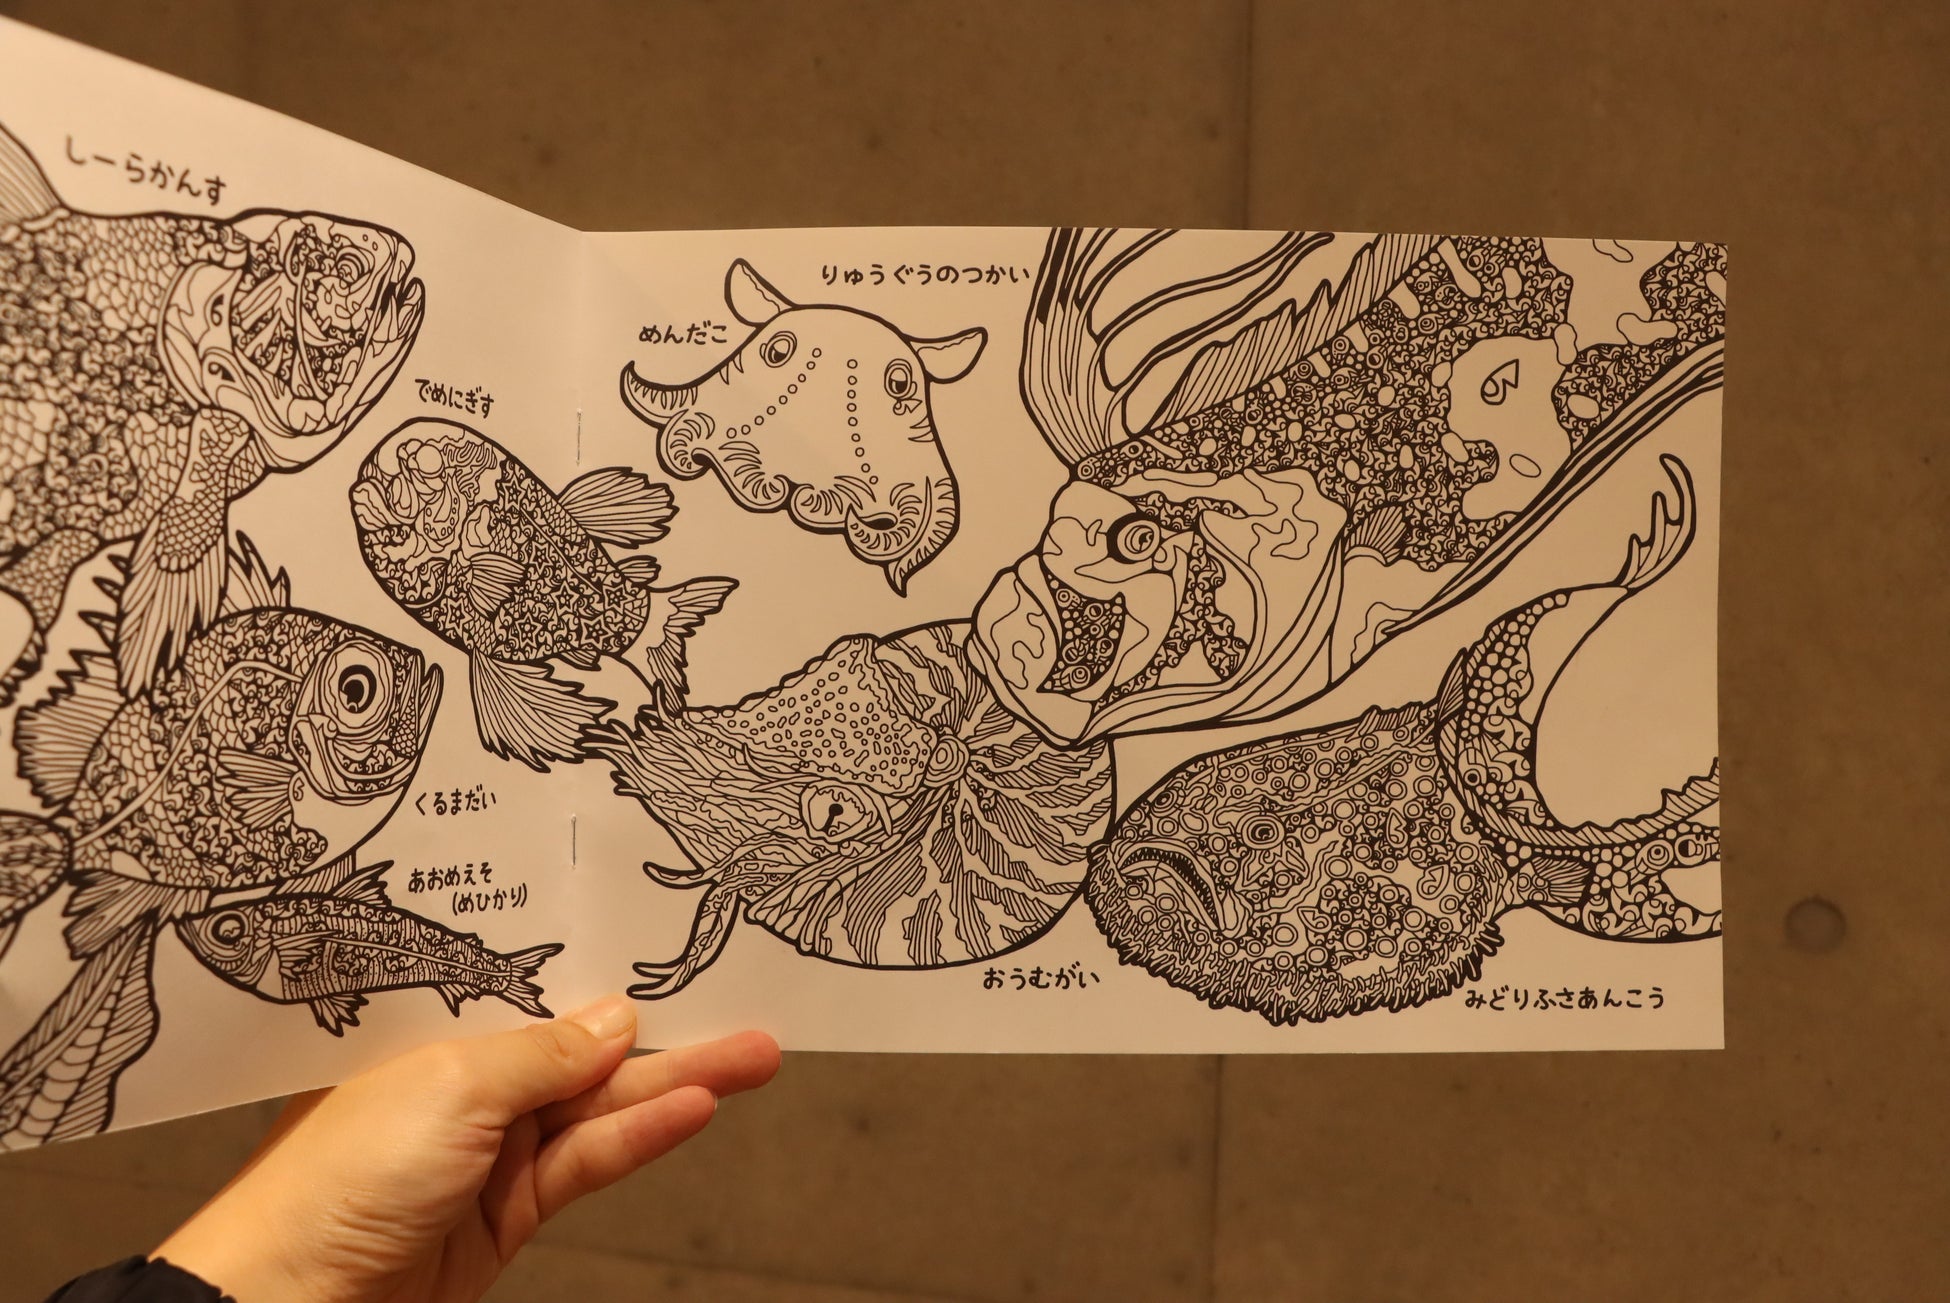 しーらかんす
でめにぎす
くるまだい
あおめえそ
(めひかり)
めんだこ
りゅうぐうのつかい
おうむがい
みどりふさあんこう